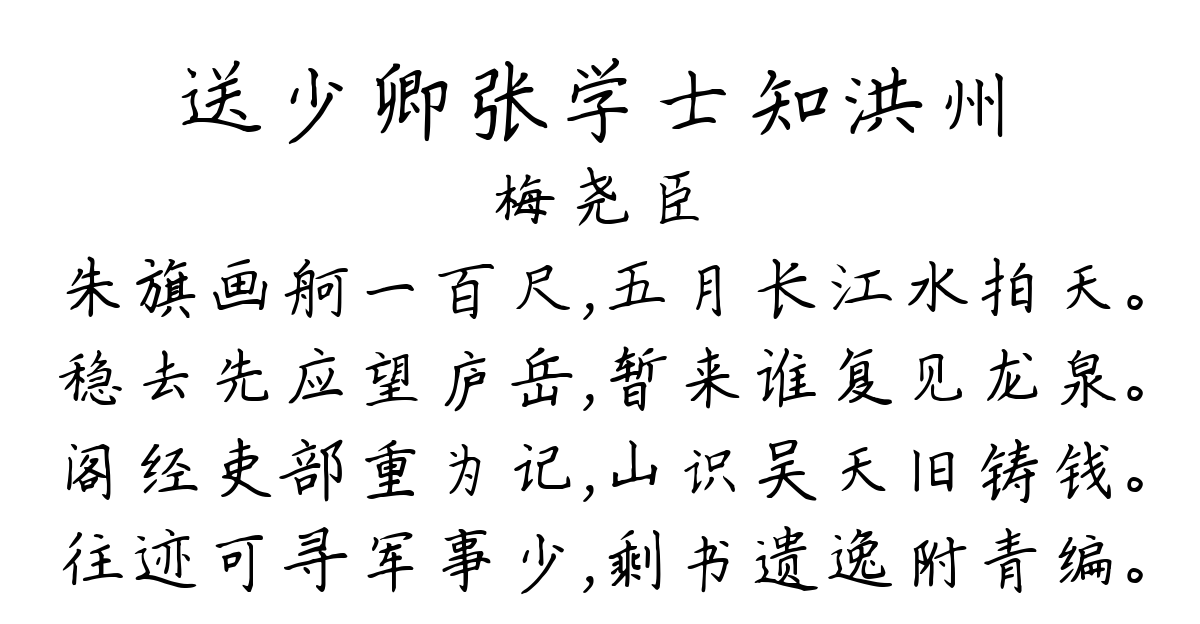 送少卿张学士知洪州
梅尧臣
朱旗画舸一百尺,五月长江水拍天。
稳去先应望庐岳,暂来谁复见龙泉。
阁经吏部重为记,山识吴天旧铸钱。
往迹可寻军事少,剩书遗逸附青编。